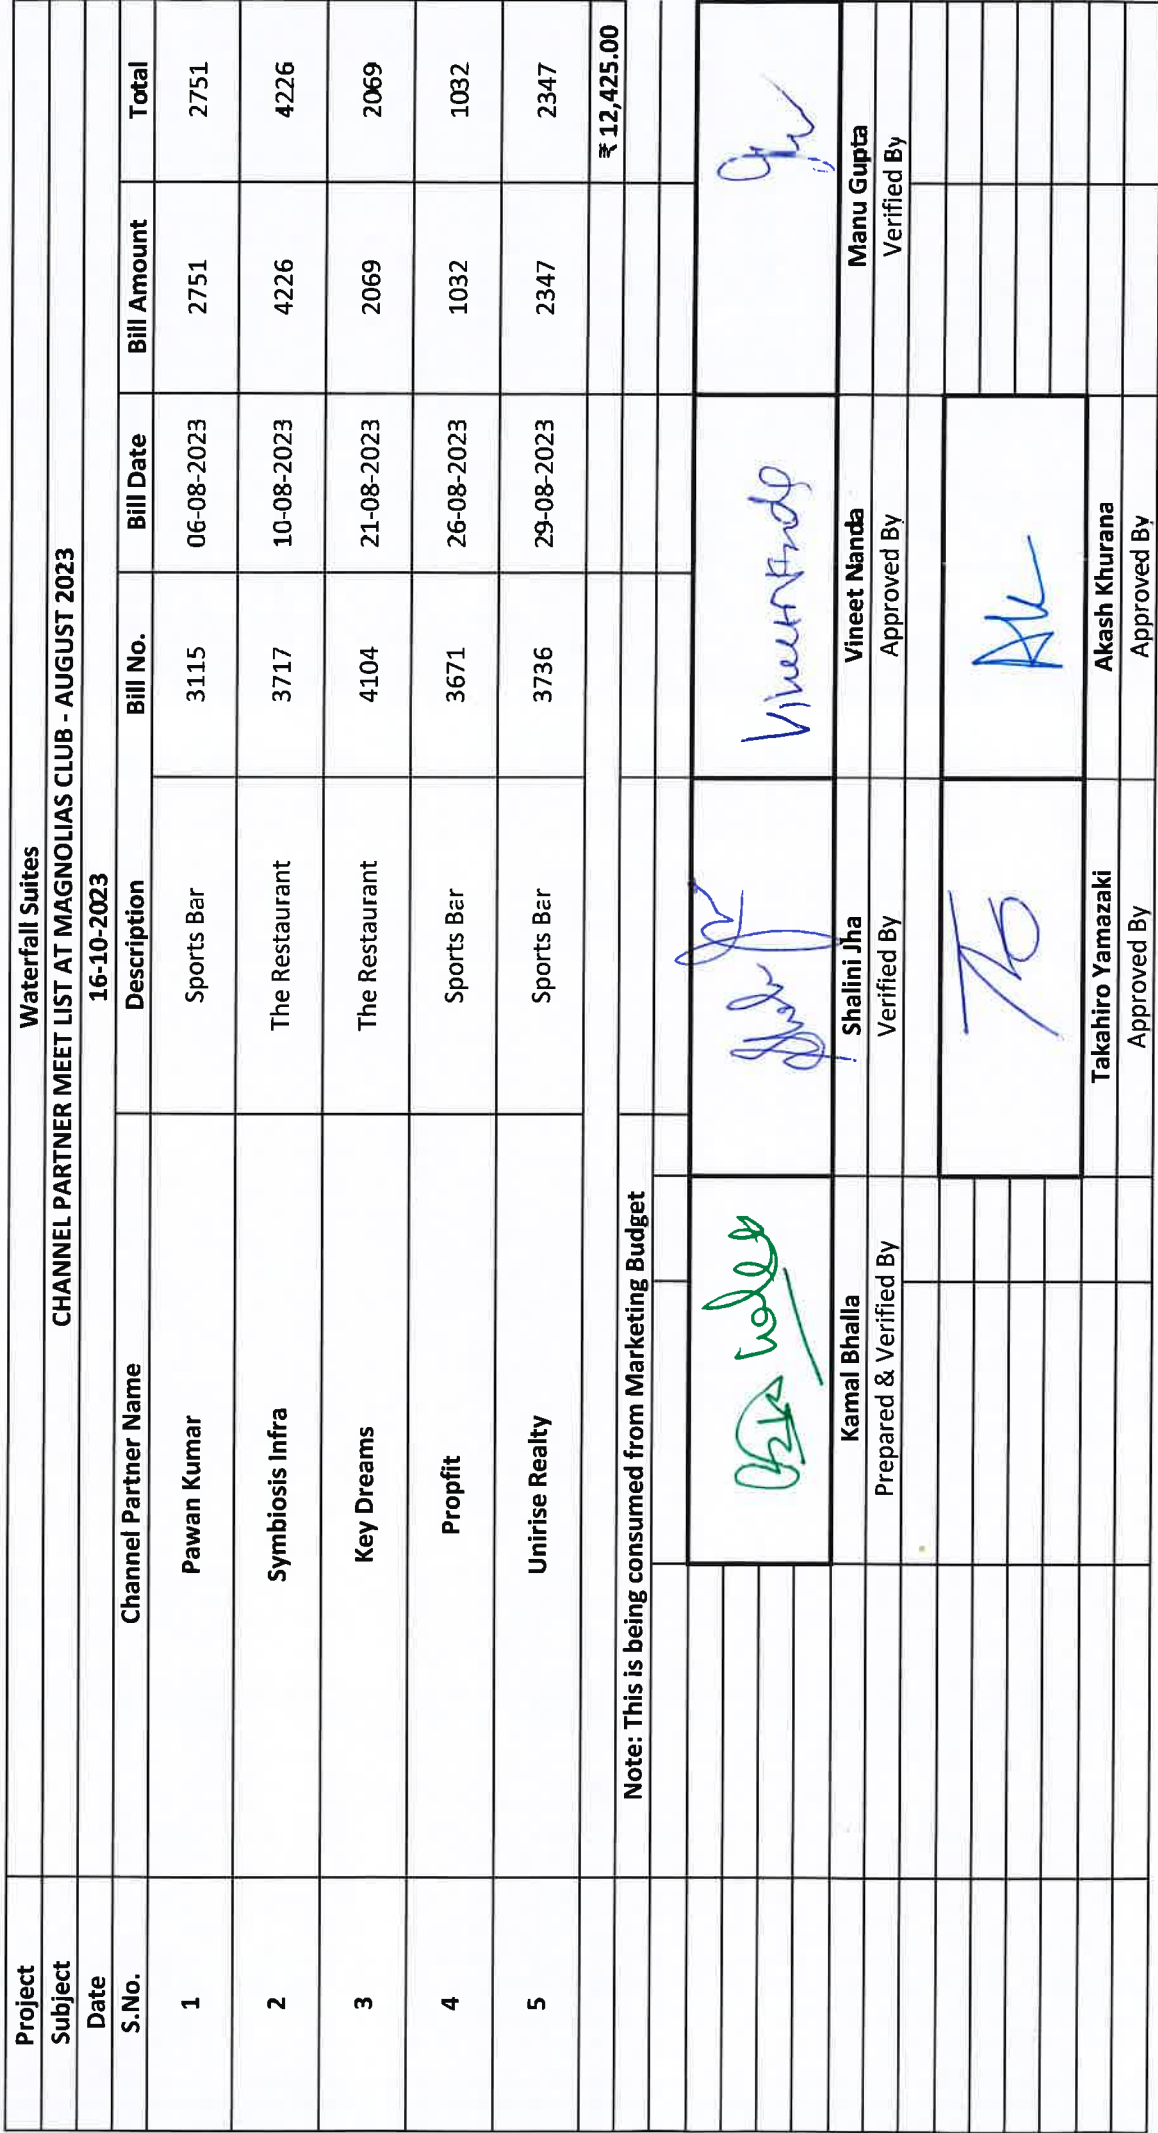 Project Waterfall Suites
Subject CHANNEL PARTNER MEET LIST AT MAGNOLIAS CLUB - AUGUST 2023
Date 16-10-2023
S.No. Channel Partner Name Description Bill No. Bill Date Bill Amount Total
1 Pawan Kumar Sports Bar 3115 06-08-2023 2751 2751
2 Symbiosis Infra The Restaurant 3717 10-08-2023 4226 4226
3 Key Dreams The Restaurant 4104 21-08-2023 2069 2069
4 Propfit Sports Bar 3671 26-08-2023 1032 1032
5 Unirise Realty Sports Bar 3736 29-08-2023 2347 2347
₹ 12,425.00
Note: This is being consumed from Marketing Budget
Vineet Nanda
Kamal Bhalla Shalini Jha Vineet Nanda Manu Gupta
Prepared & Verified By Verified By Approved By Verified By
Takahiro Yamazaki Akash Khurana
Approved By Approved By